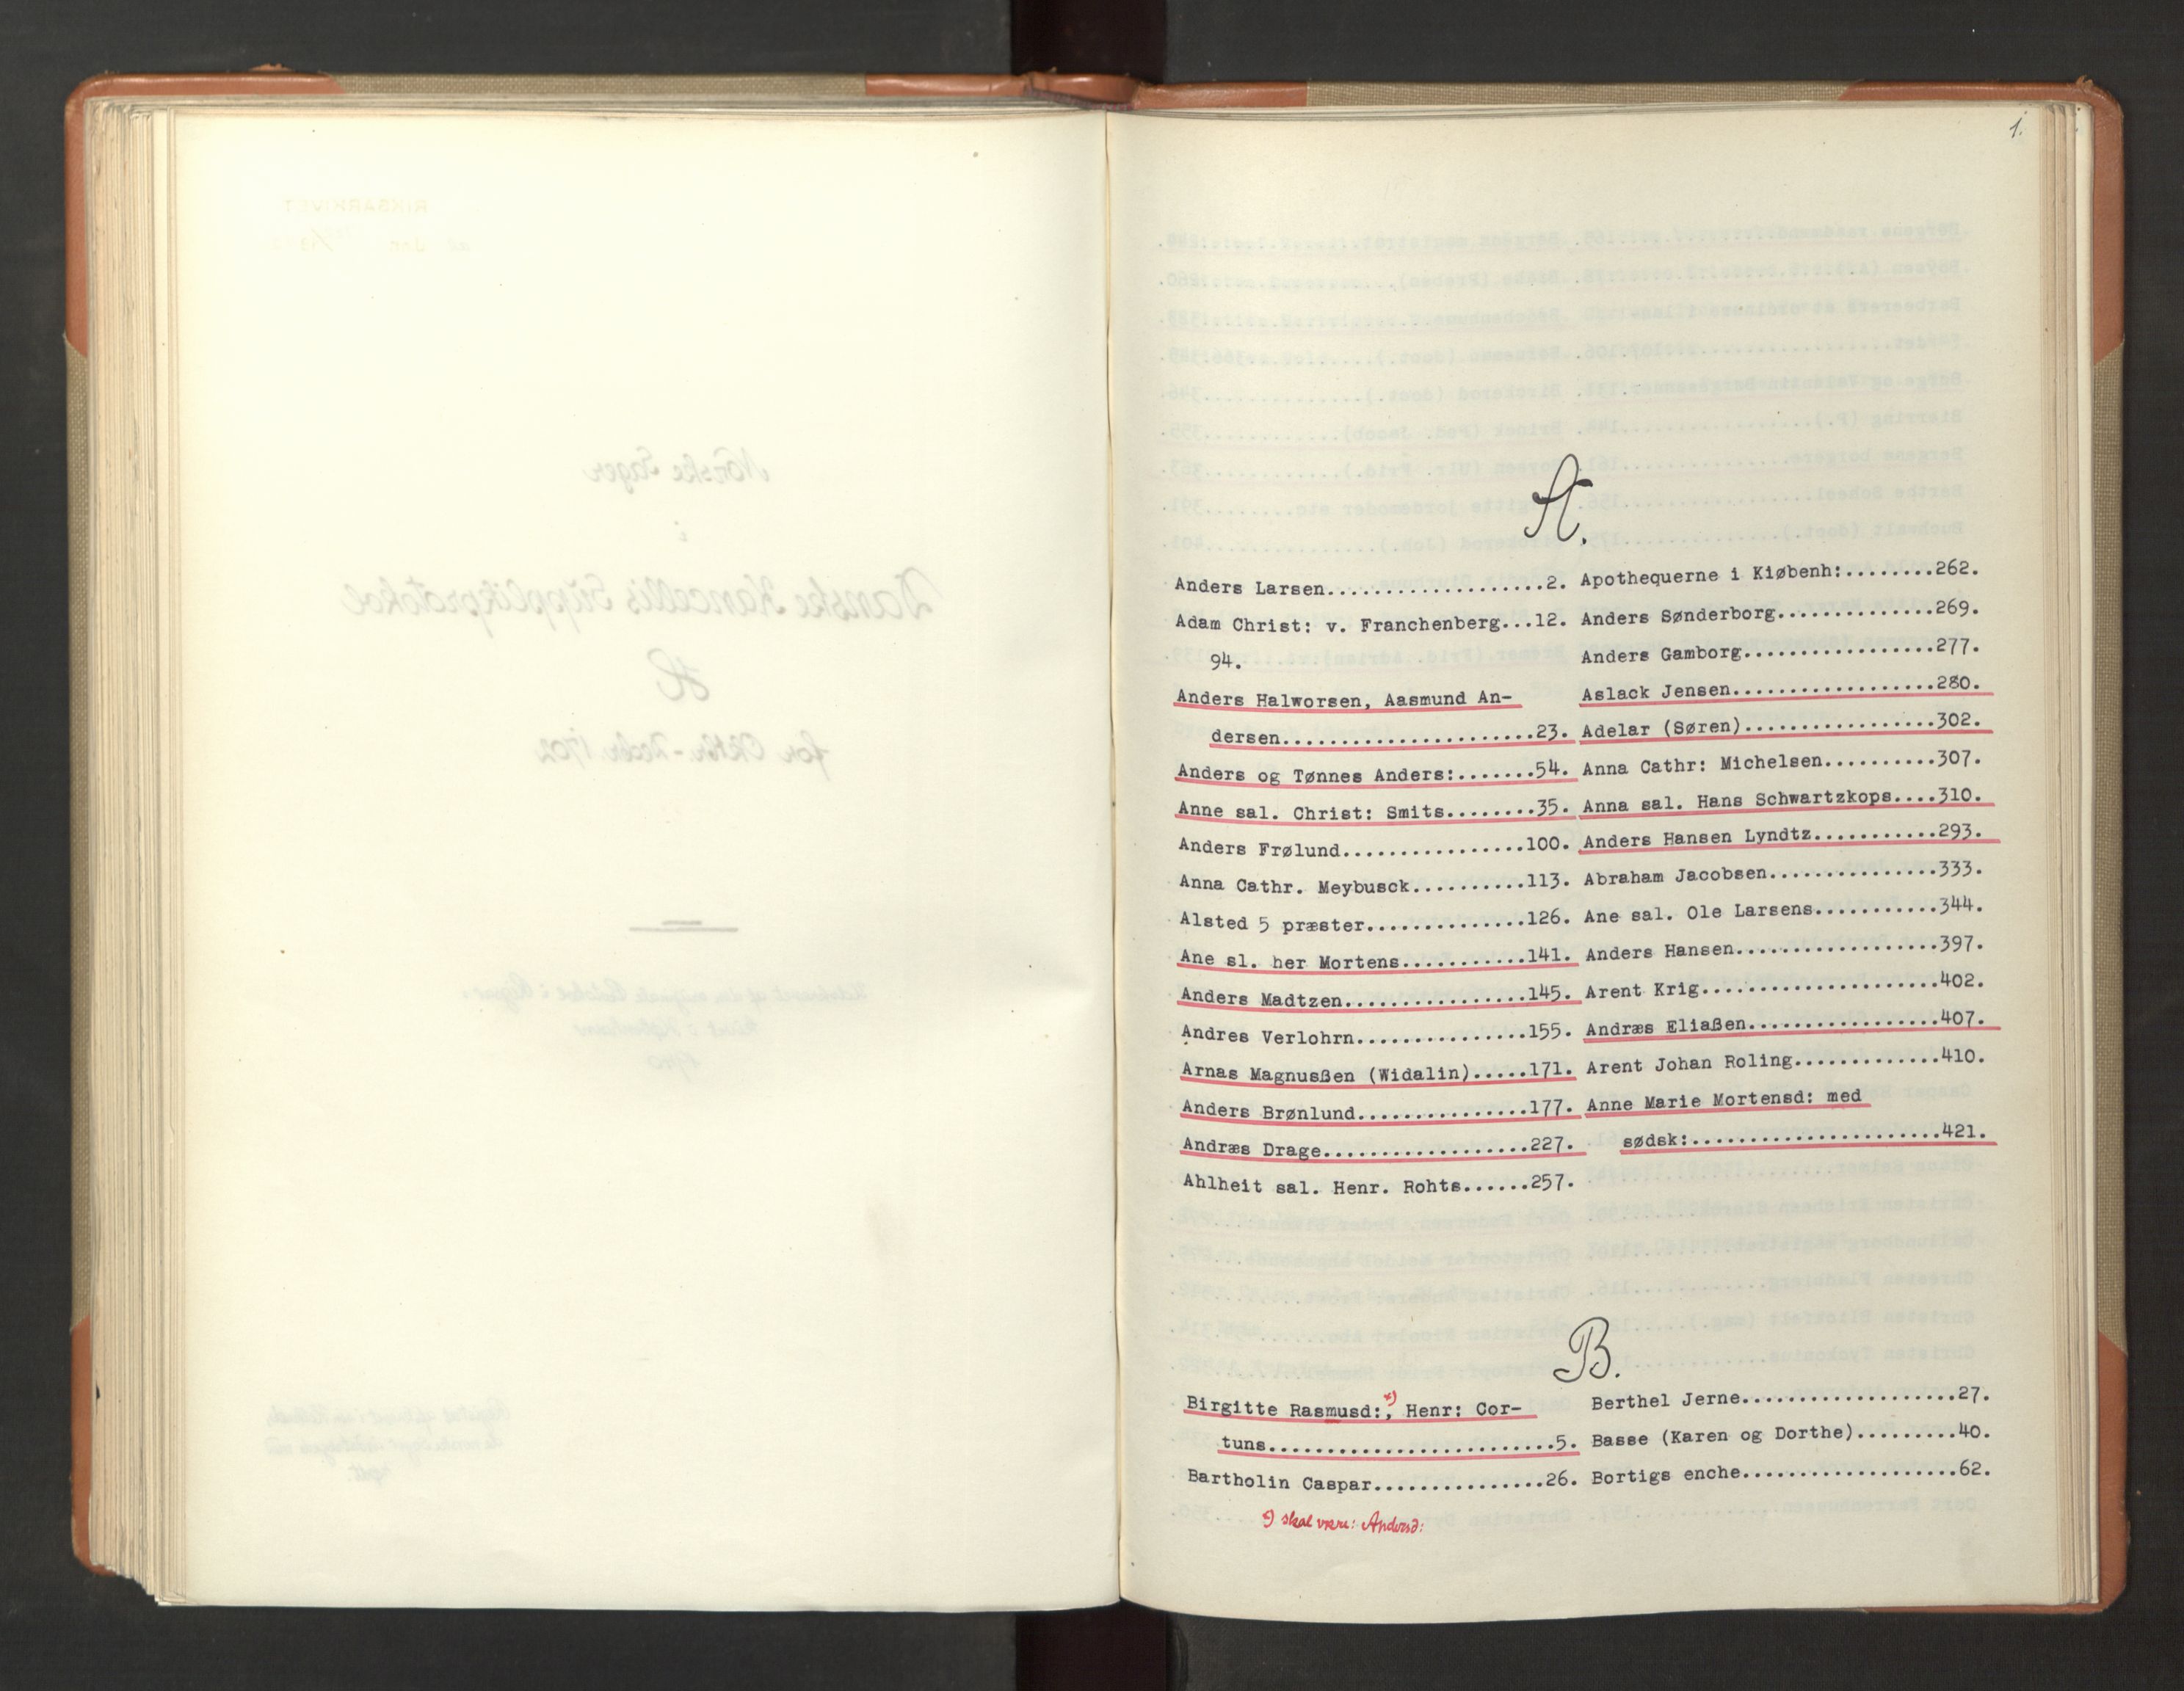 1.
A.
Anders Larsen....................2.
Adam Christ: v. Franchenberg...12.
94.
Anders Halworsen, Aasmund An-
dersen......................23.
Anders og Tønnes Anders:.......54.
Anne sal. Christ: Smits........35.
Anders Frølund................100.
Anna Cathr. Meybusck..........113.
Alsted 5 præster..............126.
Ane sl. her Mortens...........141.
Anders Madtzen................145.
Andres Verlohrn...............155.
Arnas Magnusßen (Widalin).....171.
Anders Brønlund...............177.
Andræs Drage..................227.
Ahlheit sal. Henr. Rohts......257.
Apothequerne i Kiøbenh:........262.
Anders Sønderborg..............269.
Anders Gamborg.................277.
Aslack Jensen..................280.
Adelar (Søren).................302.
Anna Cathr: Michelsen..........307.
Anna sal. Hans Schwartzkops....310.
Anders Hansen Lyndtz...........293.
Abraham Jacobsen...............333.
Ane sal. Ole Larsens...........344.
Anders Hansen..................397.
Arent Krig.....................402.
Andræs Eliaßen.................407.
Arent Johan Roling.............410.
Anne Marie Mortensd: med
sødsk:......................421.
B.
Birgitte Rasmusd:*), Henr: Cor-
tuns.........................5.
Bartholin Caspar...............26.
Berthel Jerne...................27.
Basse (Karen og Dorthe).........40.
Bortigs enche...................62.
*) skal være: Andersd: